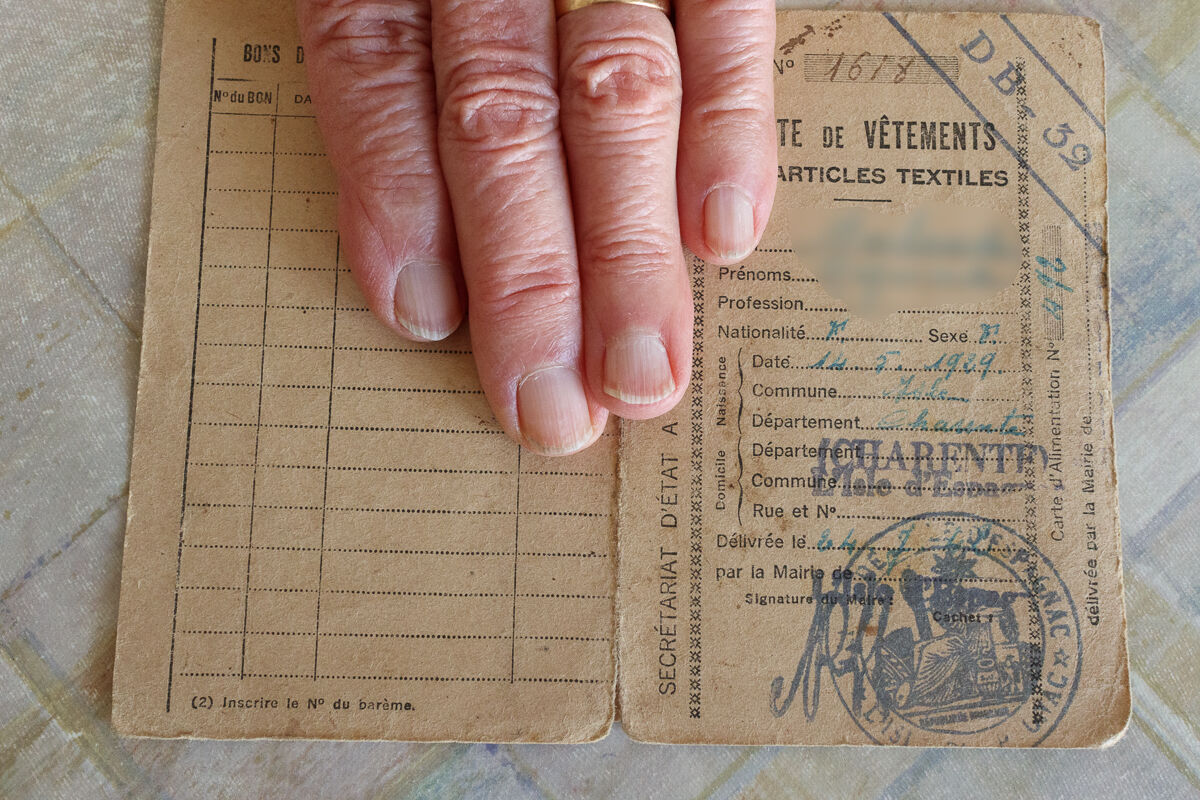 BONS D
N° du BON
DA
(2) Inscrire le N° du barème.
SECRÉTARIAT D'ÉTAT A
N° 1618
DB. 39
TE DE VÊTEMENTS
ARTICLES TEXTILES
Prénoms
Profession
Nationalité f. Sexe f.
Naissance
Date 14. 5. 1929.
Commune Isle
Département Charente
Domicile
Département (CHARENTE)
Commune L'Isle d'Espagnac
Rue et N°
Délivrée le
par la Mairie de
Signature du Maire :
Cachet :
D'ESPAGNAC
RÉPUBLIQUE FRANÇAISE
Carte d'Alimentation N°
délivrée par la Mairie de